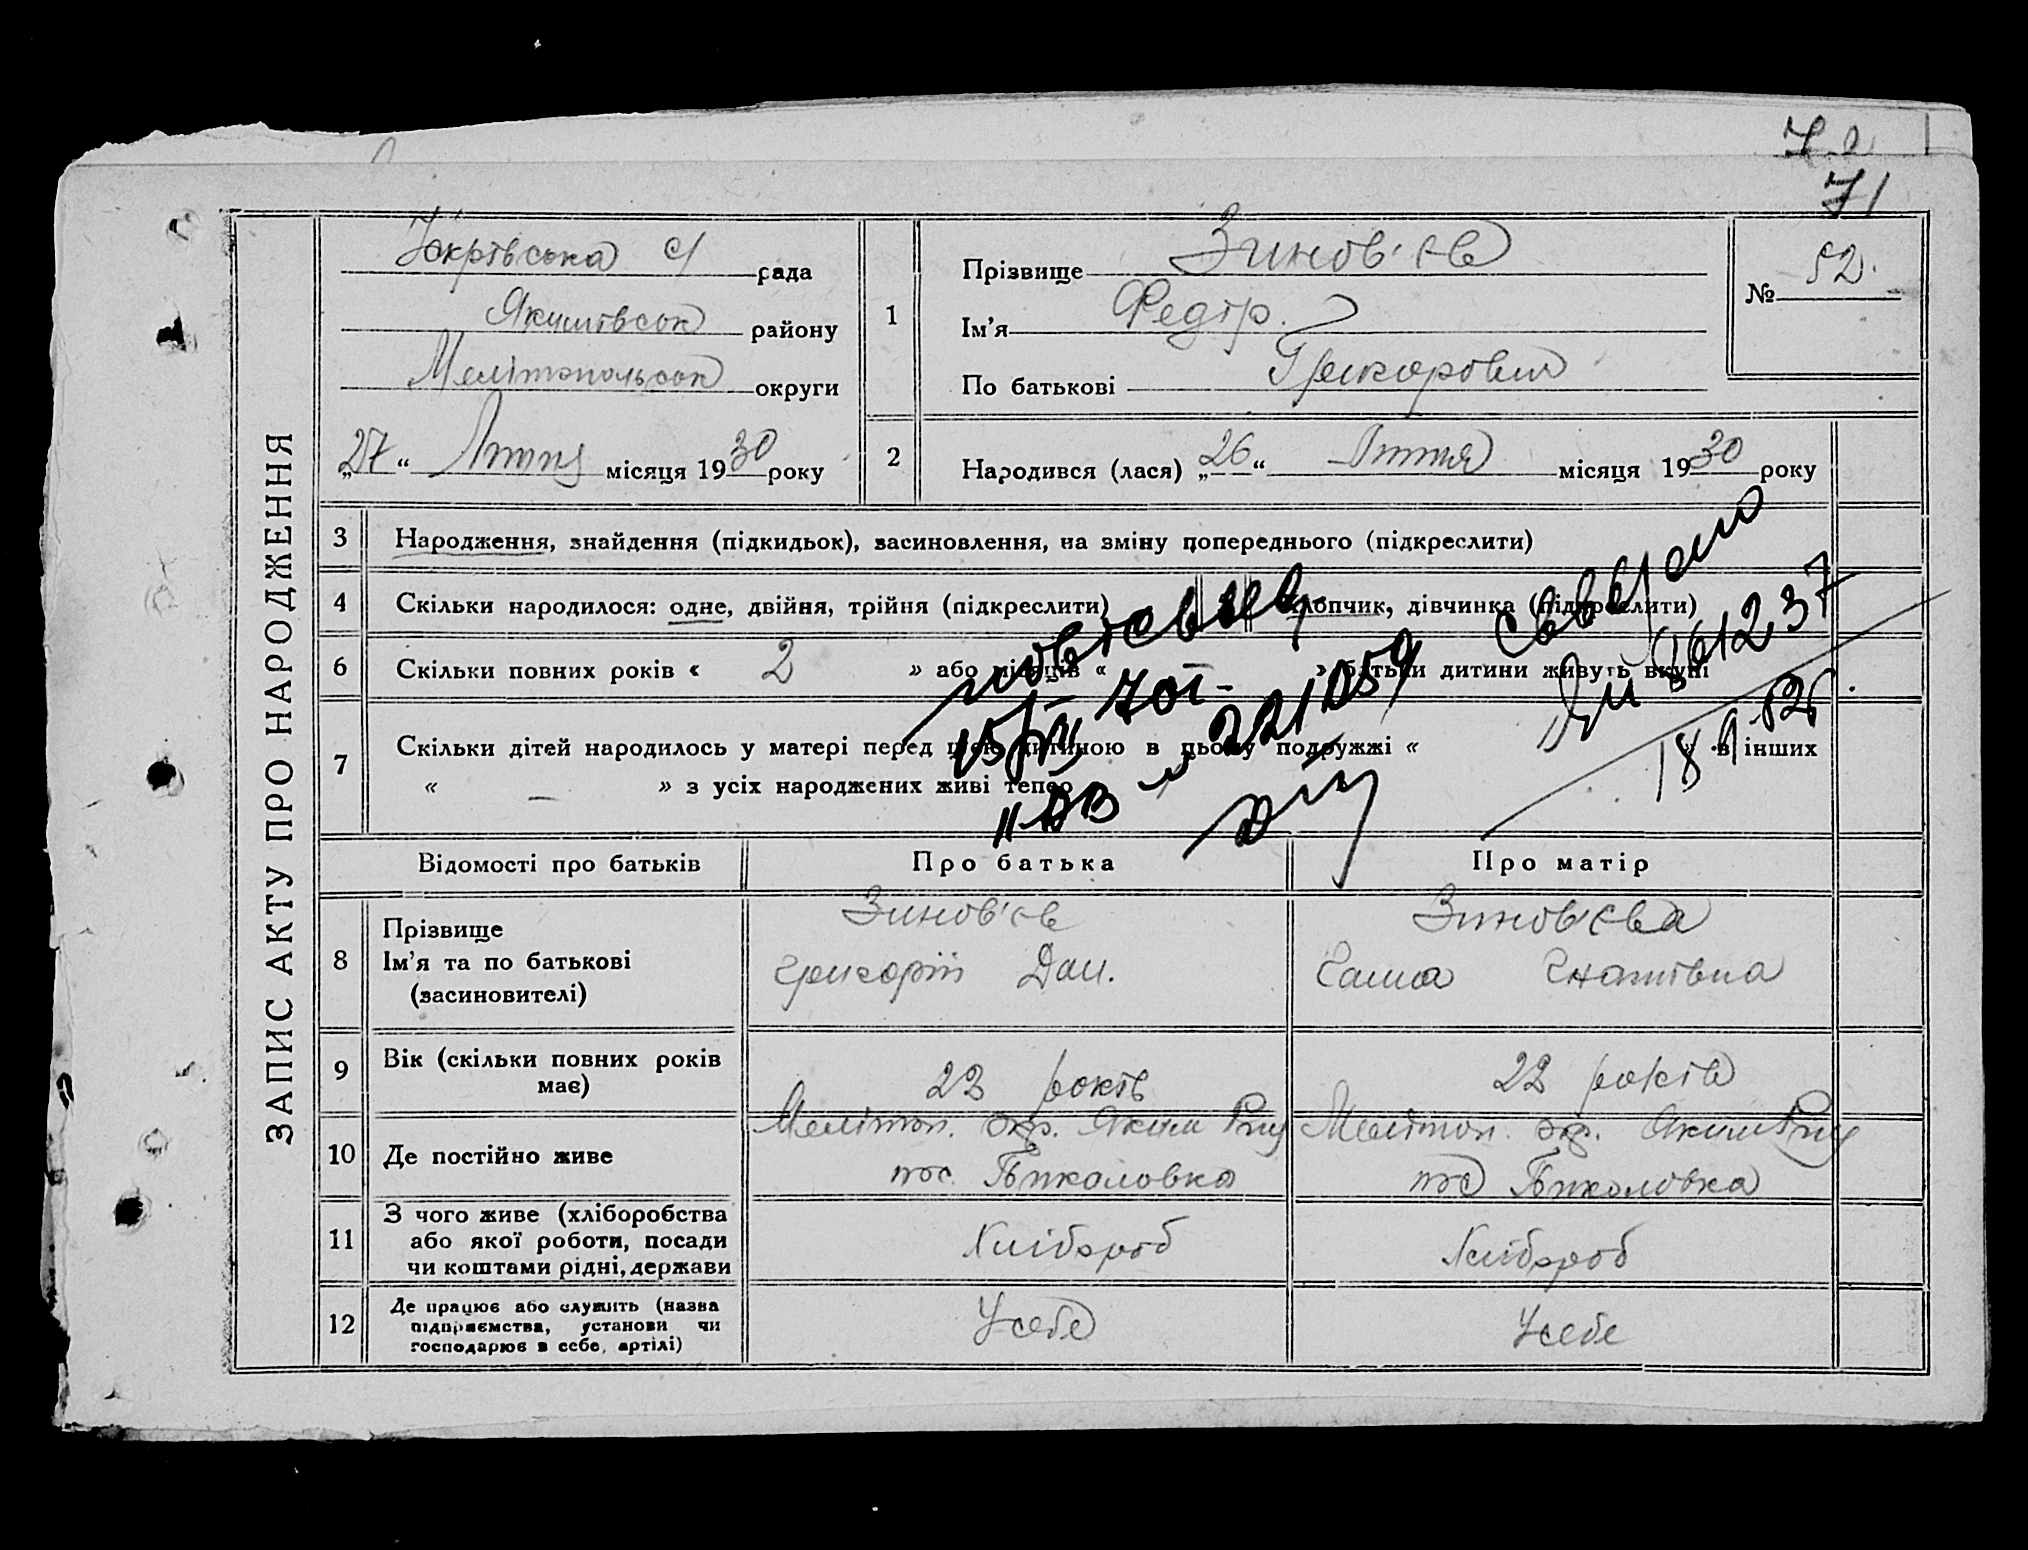 71
ЗАПИС АКТУ ПРО НАРОДЖЕННЯ
с/ рада
району
Мелітопольськ округи
„27“ місяця 1930 року
1
Прізвище Зинов'єв
Ім'я Федір
По батькові Григорович
№ 52.
2
Народився (лася) „26“ місяця 1930 року
3 Народження, знайдення (підкидьок), засиновлення, на зміну попереднього (підкреслити)
4 Скільки народилося: одне, двійня, трійня (підкреслити) хлопчик, дівчинка (підкреслити)
6 Скільки повних років « 2 » або місяців « » батьки дитини живуть вкупі
7 Скільки дітей народилось у матері перед цією дитиною в цьому подружжі « » в інших
« — » з усіх народжених живі тепер
повт свид
221059
Яи 861237
Відомості про батьків Про батька Про матір
8 Прізвище
Ім'я та по батькові
(засиновителі)
Зинов'єв
Григорій Дан.
Зинов'єва
Ганна Гнатівна
9 Вік (скільки повних років має)
23 років
22 років
10 Де постійно живе
Мелітоп. окр. Яким
пос.
Мелітоп. окр. Яким
пос
11 З чого живе (хліборобства
або якої роботи, посади
чи коштами рідні, держави
Хлібороб
Хлібороб
12 Де працює або служить (назва
підприємства, установи чи
господарює в себе, артілі)
У себе
У себе